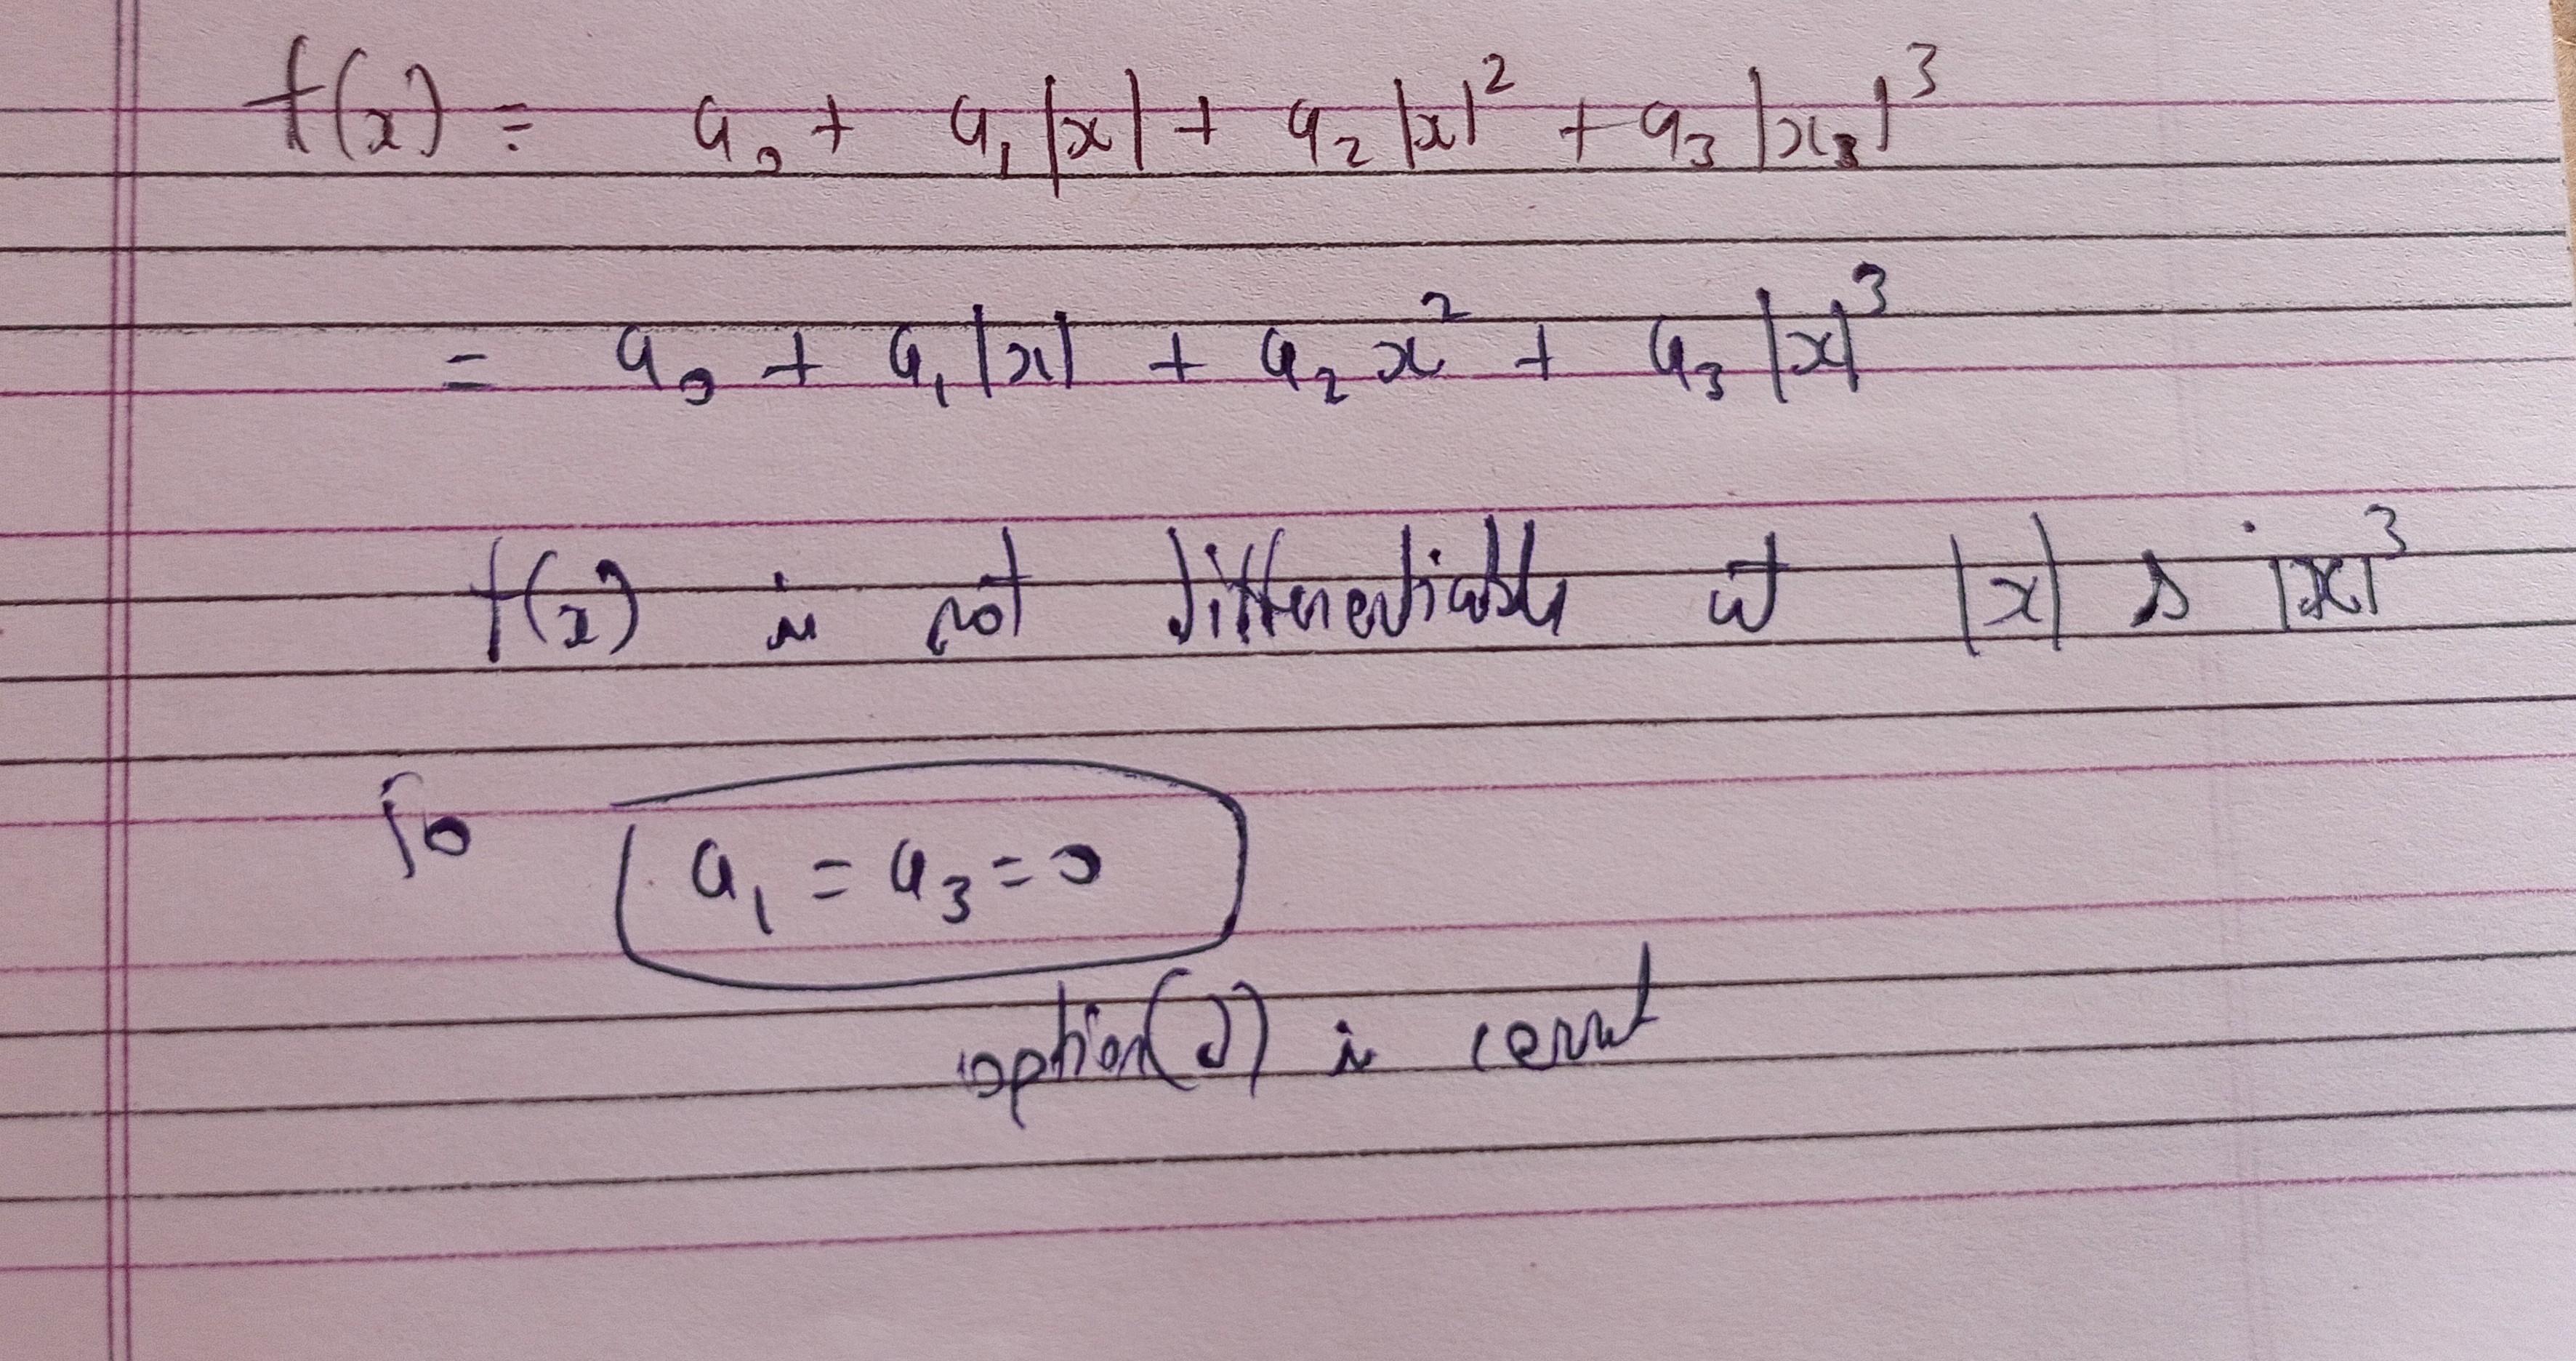 f(x) = a₀ + a₁|x| + a₂|x|² + a₃|x₃|³
= a₀ + a₁|x| + a₂x² + a₃|x|³
f(x) is not differentiable at |x| & |x|³
So a₁ = a₃ = 0
option(2) is correct